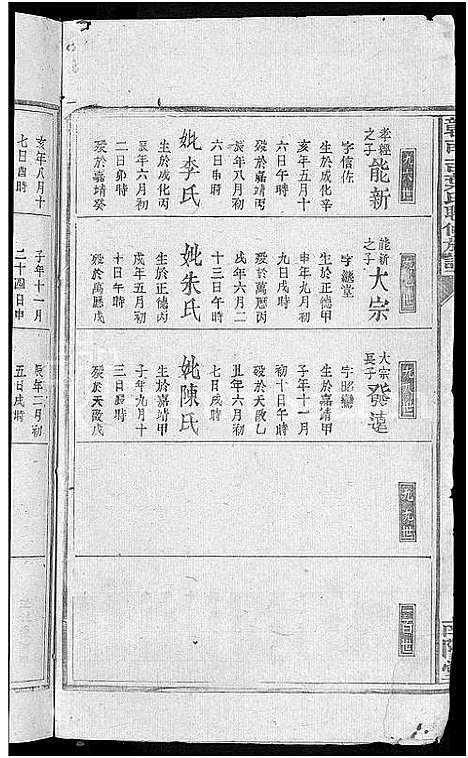 九六世
孝經之子 能新
字信佐
生於成化辛
亥年五月十
六日午時
歿於嘉靖丙
辰年八月初
六日申時
妣李氏
生於成化丙
辰年六月初
二日卯時
歿於嘉靖癸
亥年八月十
七日酉時
能新之子 大宗
字繼堂
生於正德甲
申年九月初
九日戌時
歿於萬曆丙
戌年六月二
十三日午時
妣朱氏
生於正德丙
戌年五月初
十日午時
歿於萬曆戊
子年十一月
二十四日申
九八世
大宗長子 發達
字昭巒
生於嘉靖甲
子年十一月
初十日午時
歿於天啟乙
丑年六月初
七日戌時
妣陳氏
生於嘉靖甲
子年九月十
三日辰時
歿於天啟戊
辰年二月初
五日戌時
九九世
一百世
葉氏聯修族譜
南陽堂